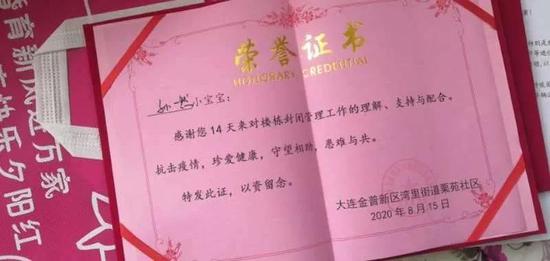 荣誉证书
HONORARY CREDENTIAL
小宝宝：
感谢您14天来对楼栋封闭管理工作的理解、支持与配合。
抗击疫情，珍爱健康，守望相助，患难与共。
特发此证，以资留念。
大连金普新区湾里街道栗苑社区
2020年8月15日
育新风进万家
快乐夕阳红